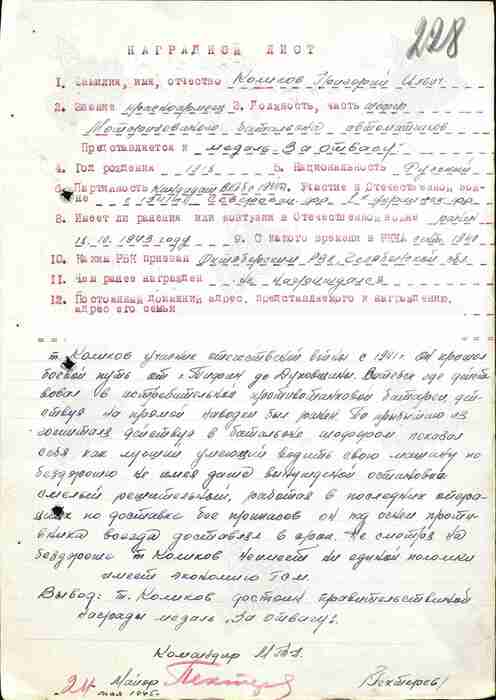 228
НАГРАДНОЙ ЛИСТ
1. Фамилия, имя, отчество Комков Григорий Ильич
2. Звание красноармеец 3. Должность, часть шофер
Моторизованного батальона автоматчиков
Представляется к медаль "За отвагу"
4. Год рождения 1918 5. Национальность Русский
6. Партийность Кандидат ВКП(б) с 1942 Участие в Отечественной вой-
не с 1941
8. Имеет ли ранения или контузии в Отечественной войне ранен
18.10.1943 году 9. С какого времени в РККА 1940
10. Каким РВК призван РВК Челябинской обл
11. Чем ранее награжден не награждался
12. Постоянный домашний адрес, представляемого к награждению,
адрес его семьи
т. Комков участник отечественной войны с 1941 г. Он прошел
боевой путь от г. до Духовщины. Витебск где действ
вовал в истребительной противотанковой батареи дей-
ствуя на прямой наводки был ранен. По прибытию из
госпиталя действуя в батальоне шофером показал
себя как лучший умеющий водить свою машину по
бездорожию не имея даже вынужденной остановки
смелый решительный, работая в последних опера-
циях по доставке бое припасов он под огнем проти-
вника всегда доставлял в срок. Не смотря на
бездорожье т. Комков не имеет ни единой поломки
имеет экономию ГСМ.
Вывод: т. Комков достоин правительственной
награды медаль "За отвагу".
Командир МБА
Майор
24 мая 1945 г.